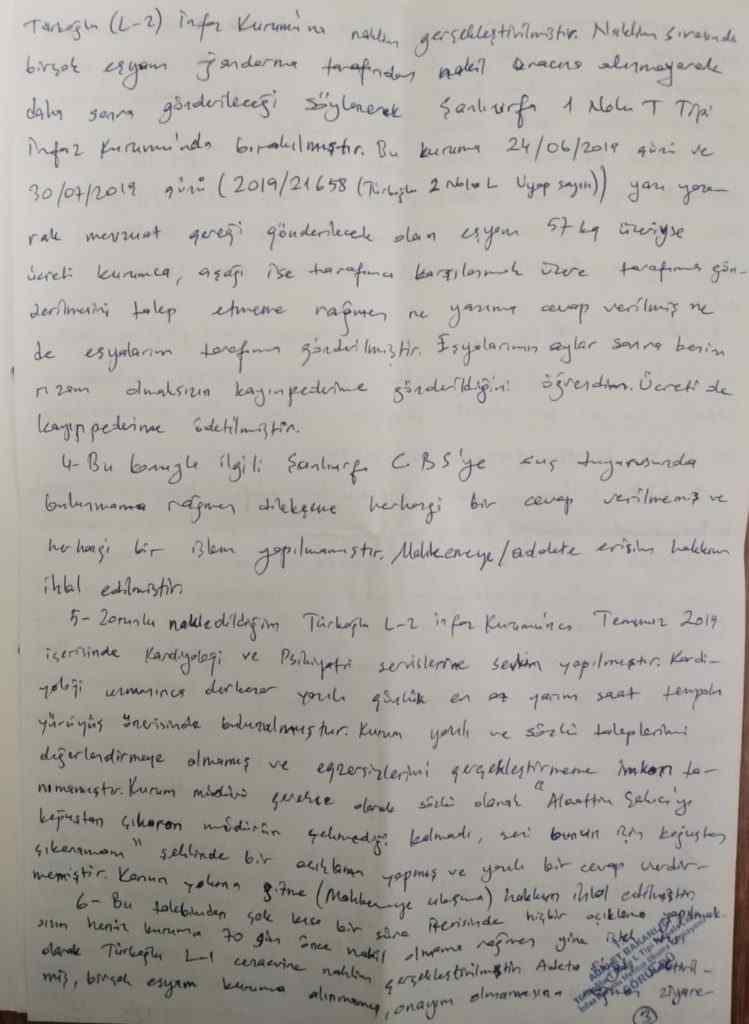 Türkoğlu (L-2) İnfaz Kurumu'na naklim gerçekleştirilmiştir. Naklim sırasında
birçok eşyam jandarma tarafından nakil aracına alınmayarak
daha sonra gönderileceği söylenerek Şanlıurfa 1 Nolu T Tipi
İnfaz Kurumu'nda bırakılmıştır. Bu kuruma 24/06/2019 günü ve
30/07/2019 günü (2019/21658 (Türkoğlu 2 Nolu L Uyap sayısı)) yazı yaza
rak mevzuat gereği gönderilecek olan eşyam 57 kg üzeriyse
ücreti kurumca, aşağı ise tarafımca karşılanmak üzere tarafıma gön-
derilmesini talep etmeme rağmen ne yazıma cevap verilmiş ne
de eşyalarım tarafıma gönderilmiştir. Eşyalarımın aylar sonra benim
rızam olmaksızın kayınpederime gönderildiğini öğrendim. Ücreti de
kayınpederime ödetilmiştir.
4- Bu konuyla ilgili Şanlıurfa CBS'ye suç duyurusunda
bulunmama rağmen dilekçeme herhangi bir cevap verilmemiş ve
herhangi bir işlem yapılmamıştır. Mahkemeye/adalete erişim hakkım
ihlal edilmiştir.
5- Zorunlu nakledildiğim Türkoğlu L-2 İnfaz Kurumu'nca Temmuz 2019
içerisinde Kardiyoloji ve Psikiyatri servislerine sevkim yapılmıştır. Kardi-
yoloji uzmanınca yazılı günlük en az yarım saat tempolu
yürüyüş önerisinde bulunulmuştur. Kurum yazılı ve sözlü taleplerimi
değerlendirmeye almamış ve egzersizlerimi gerçekleştirmeme imkan ta-
nımamıştır. Kurum müdürü gerekçe olarak sözlü olarak "Alaattin 'yi
koğuştan çıkaran müdürün çekmediği kalmadı, seni bunun için koğuştan
çıkaramam" şeklinde bir açıklama yapmış ve yazılı bir cevap verdir-
memiştir. Kanun yoluna gitme (Mahkemeye ulaşma) hakkım ihlal edilmiştir.
6- Bu talebimden çok kısa bir süre içerisinde hiçbir açıklama yapılmak-
sızın henüz kuruma 70 gün önce nakil olmama rağmen yine
olarak Türkoğlu L-1 cezaevine naklim gerçekleştirilmiştir. Adeta
miş, birçok eşyam kuruma alınmamış, onayım olmamasına ziyare-
ADALET BAKANLIĞI
3